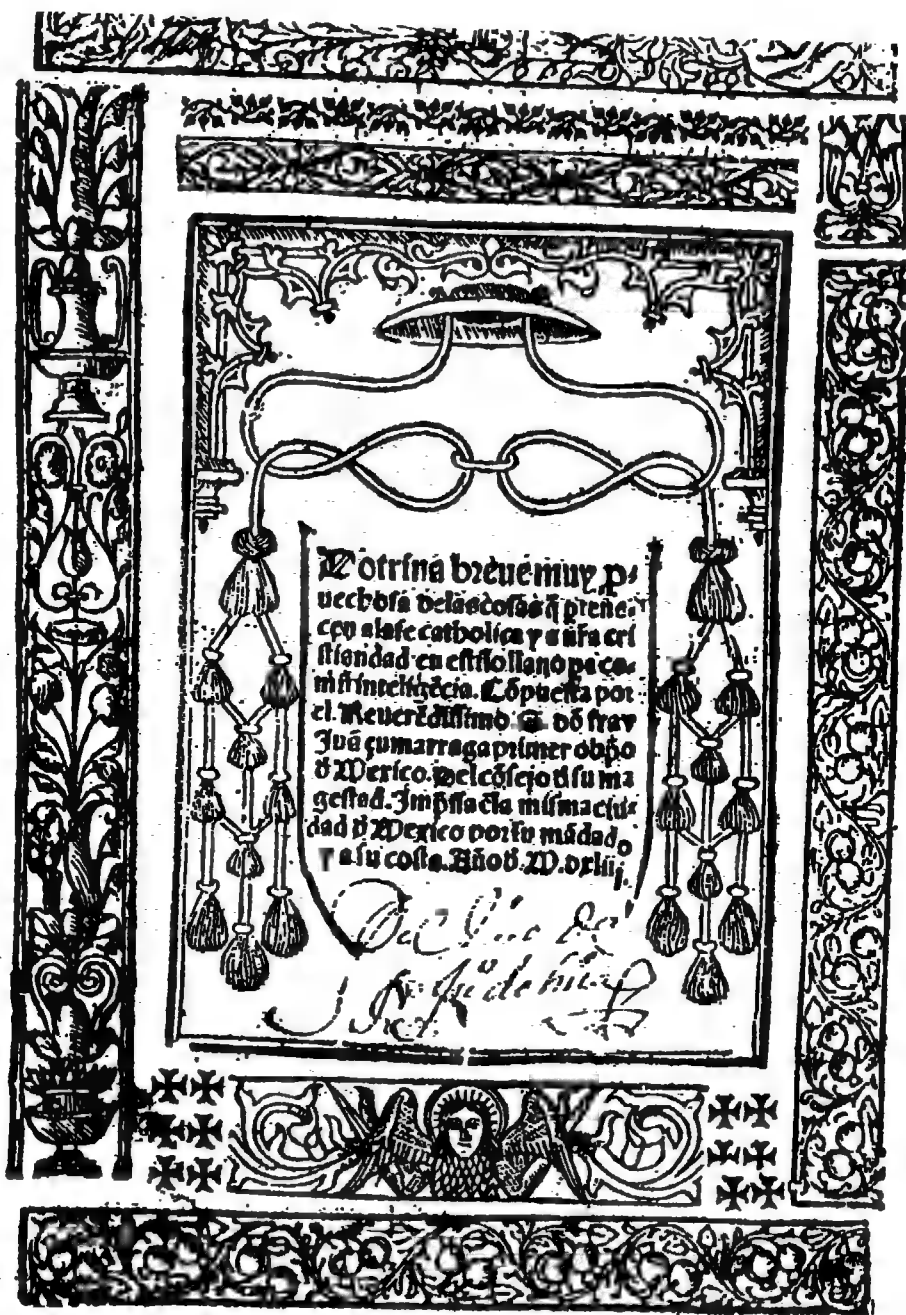 Dotrina breue muy p-
uechosa delas cosas q̃ ptene-
cen ala fe catholica y a nr̃a cri
stiandad en estilo llano pa co-
mũ inteligẽcia. Cõpuesta por
el. Reuerẽdissimo. S. dõ fray
Juã çumarraga primer obp̃o
d̓ Mexico. Del cõsejo d̓ su ma
gestad. Impr̃ssa ẽla misma ciu-
dad d̓ Mexico por su mãdado
y a su costa. Año d̓. M.dxliij.
de